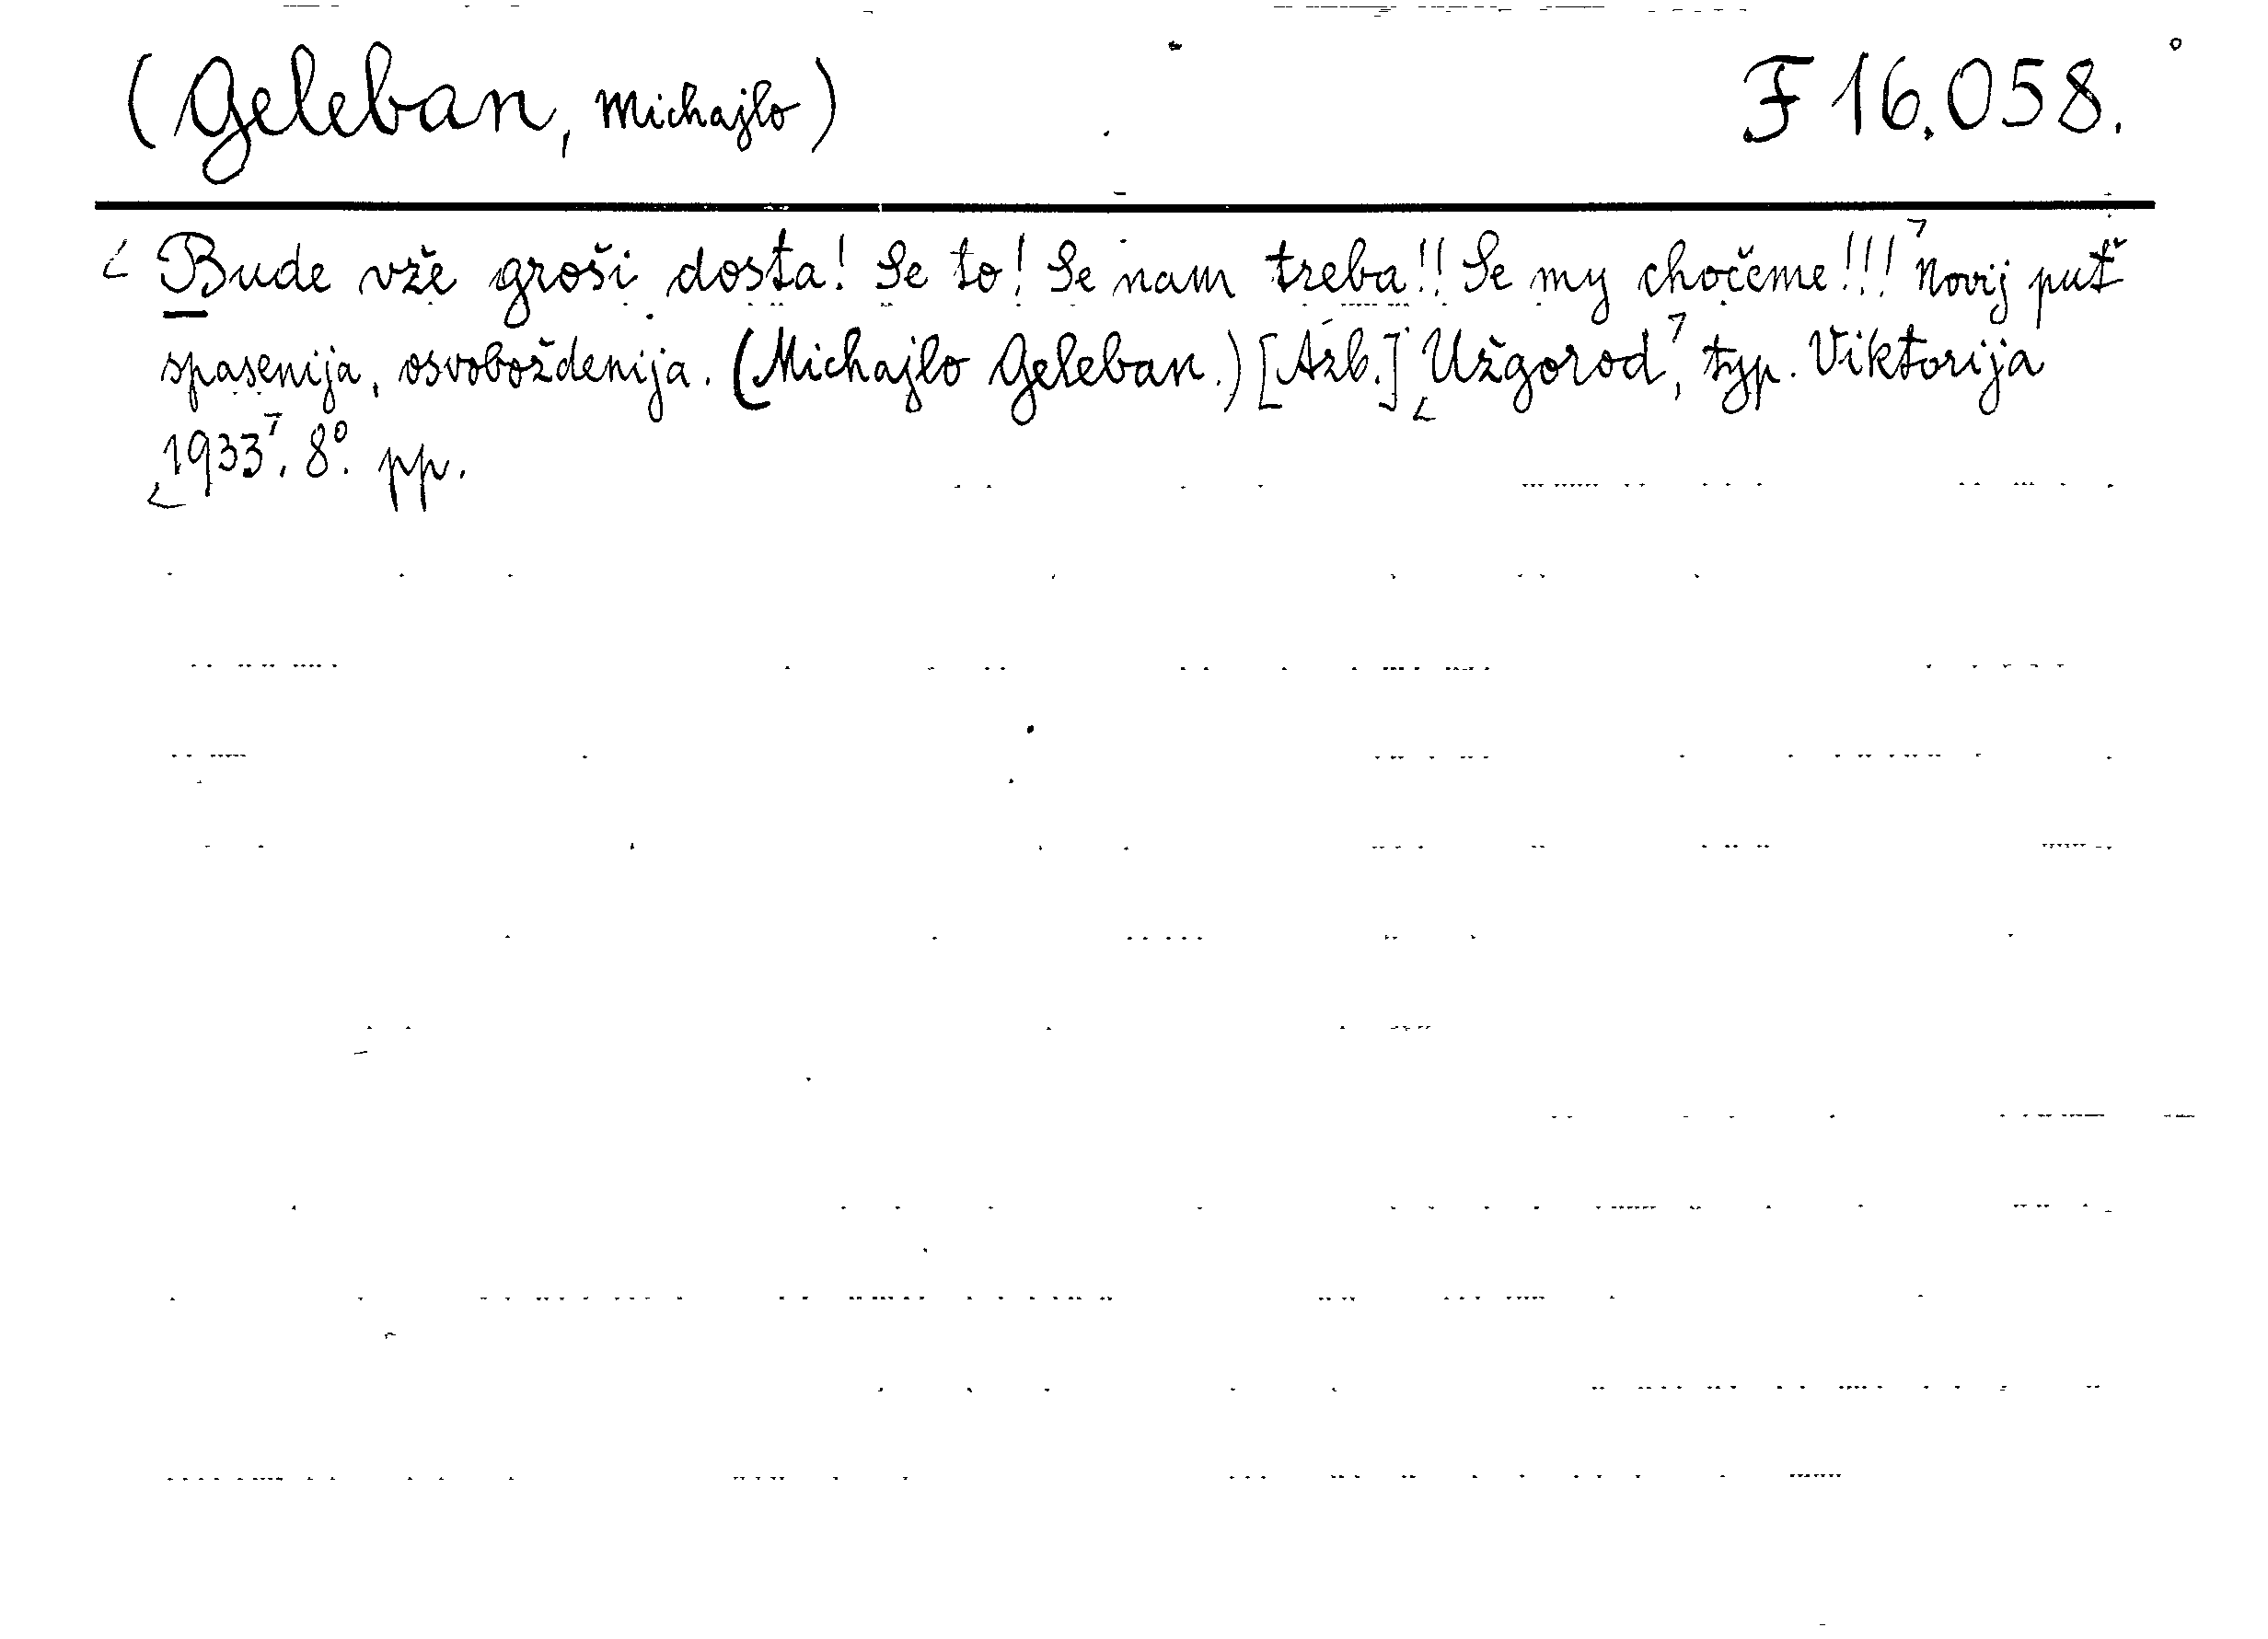 (Geleban, Michajlo) F 16.058.
Bude vže groši dosta! Se to! Se nam treba!! Se my chočeme!!! Novij puť
spasenija, osvoboždenija. (Michajlo Geleban.) [Azb.] Užgorod, typ. Viktorija
1933. 8°. pp.